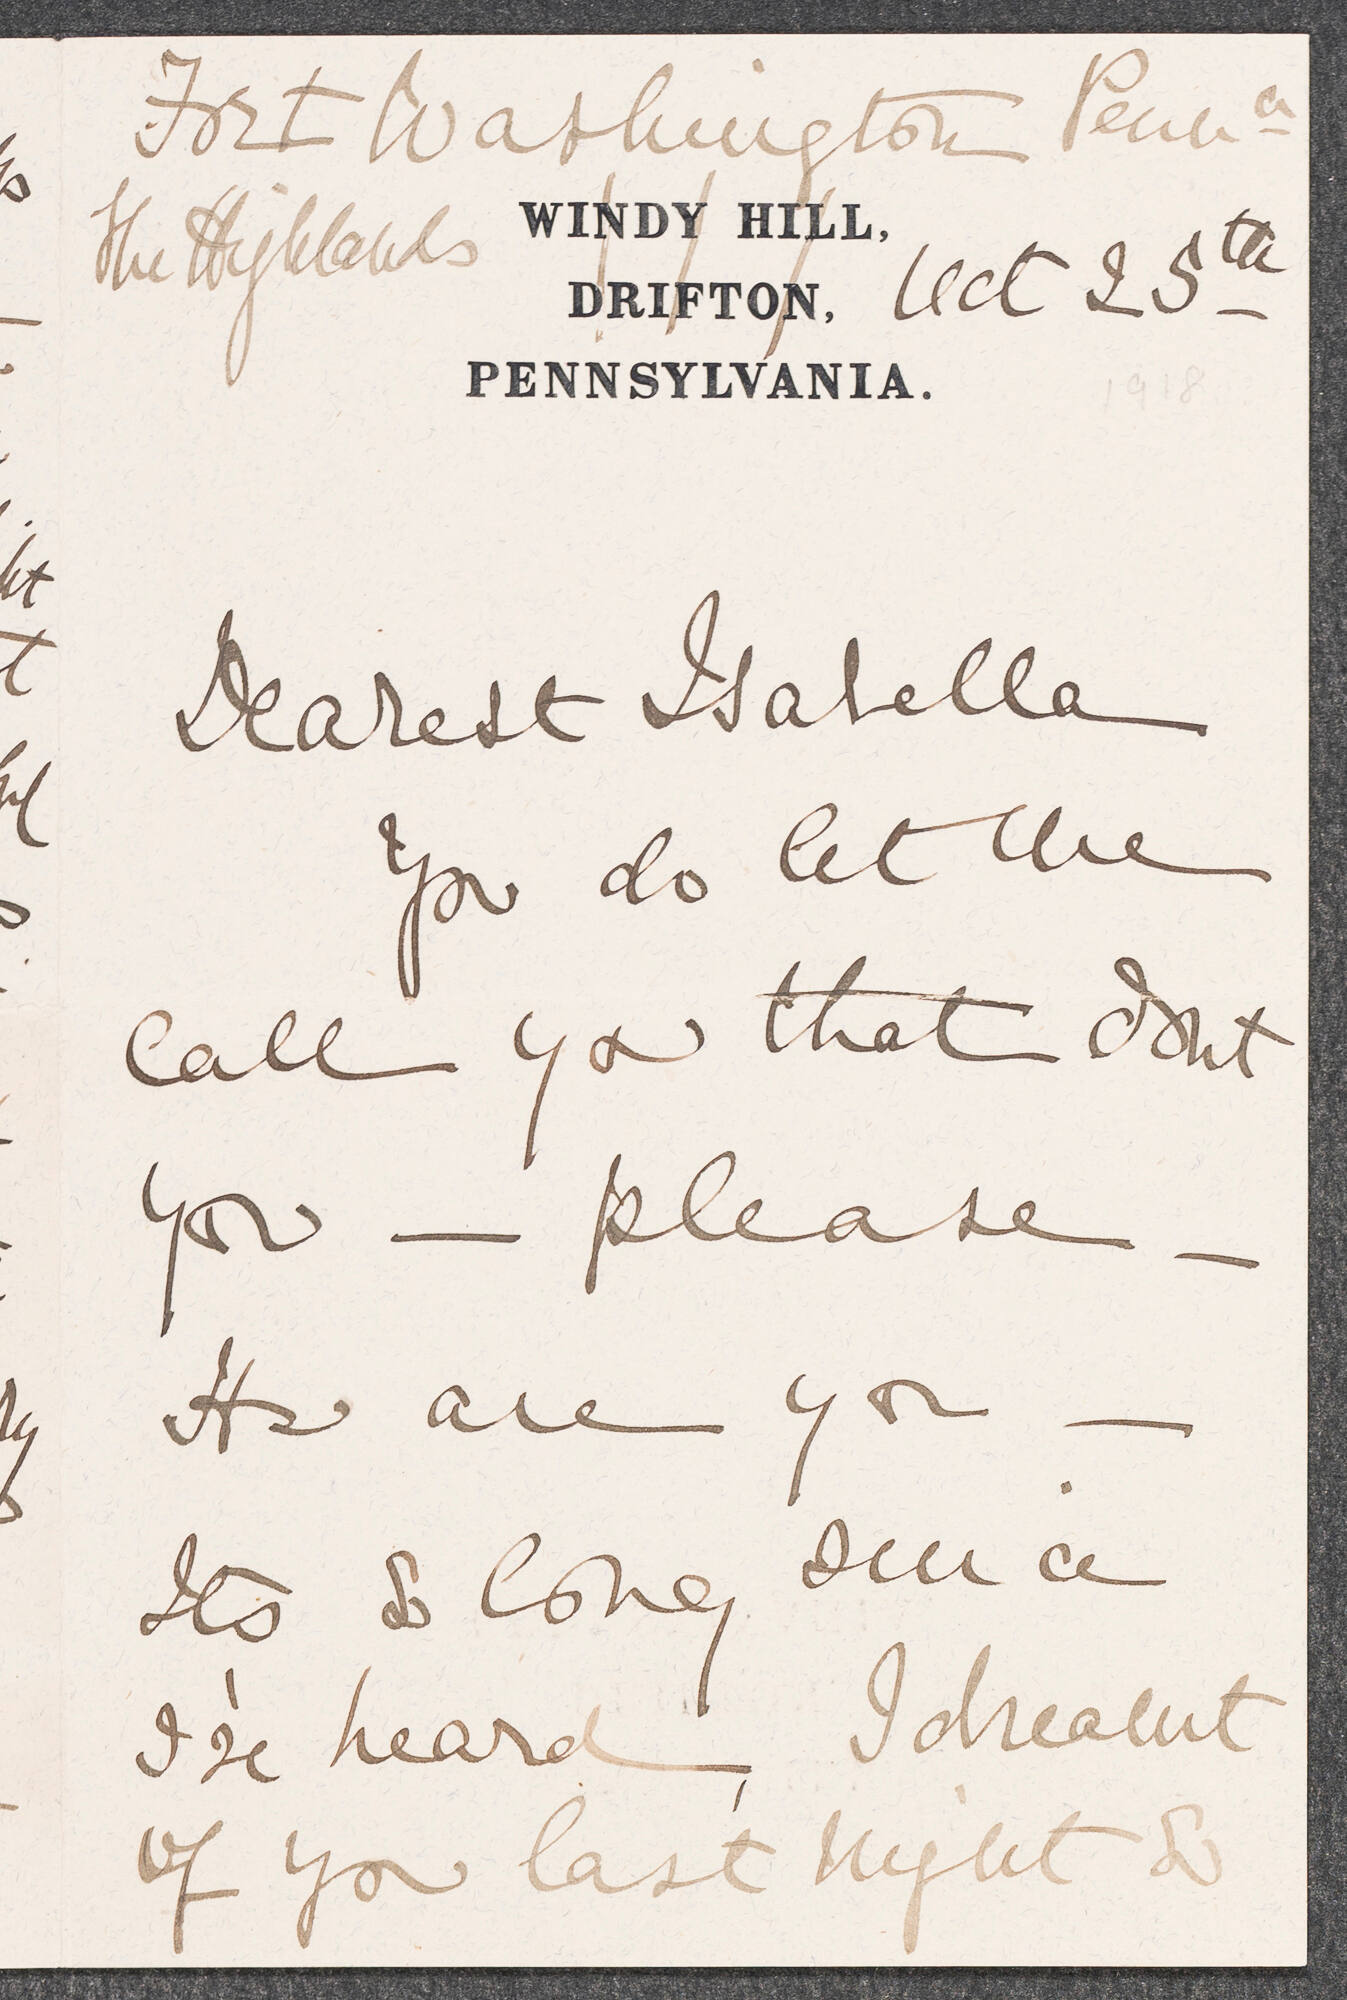 Fort Washington Penna
The Highlands
WINDY HILL,
DRIFTON,
PENNSYLVANIA.
Oct 25th
1918
Dearest Isabella
You do let me
call you that dont
you — please —
How are you —
Its so long since
I've heard, I dreamt
of you last night so